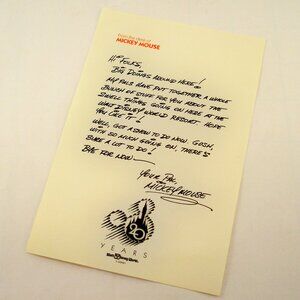 From the desk of
MICKEY MOUSE
Hi Folks,
Big Doings Around Here!
My pals have put together a whole
bunch of stuff for you about the
swell things going on here at the
Walt Disney World Resort. Hope
you like it!
Well, got a show to do now. Gosh,
with so much going on, there's
sure a lot to do!
Bye for now—
Your Pal,
Mickey Mouse
20
YEARS
Walt Disney World